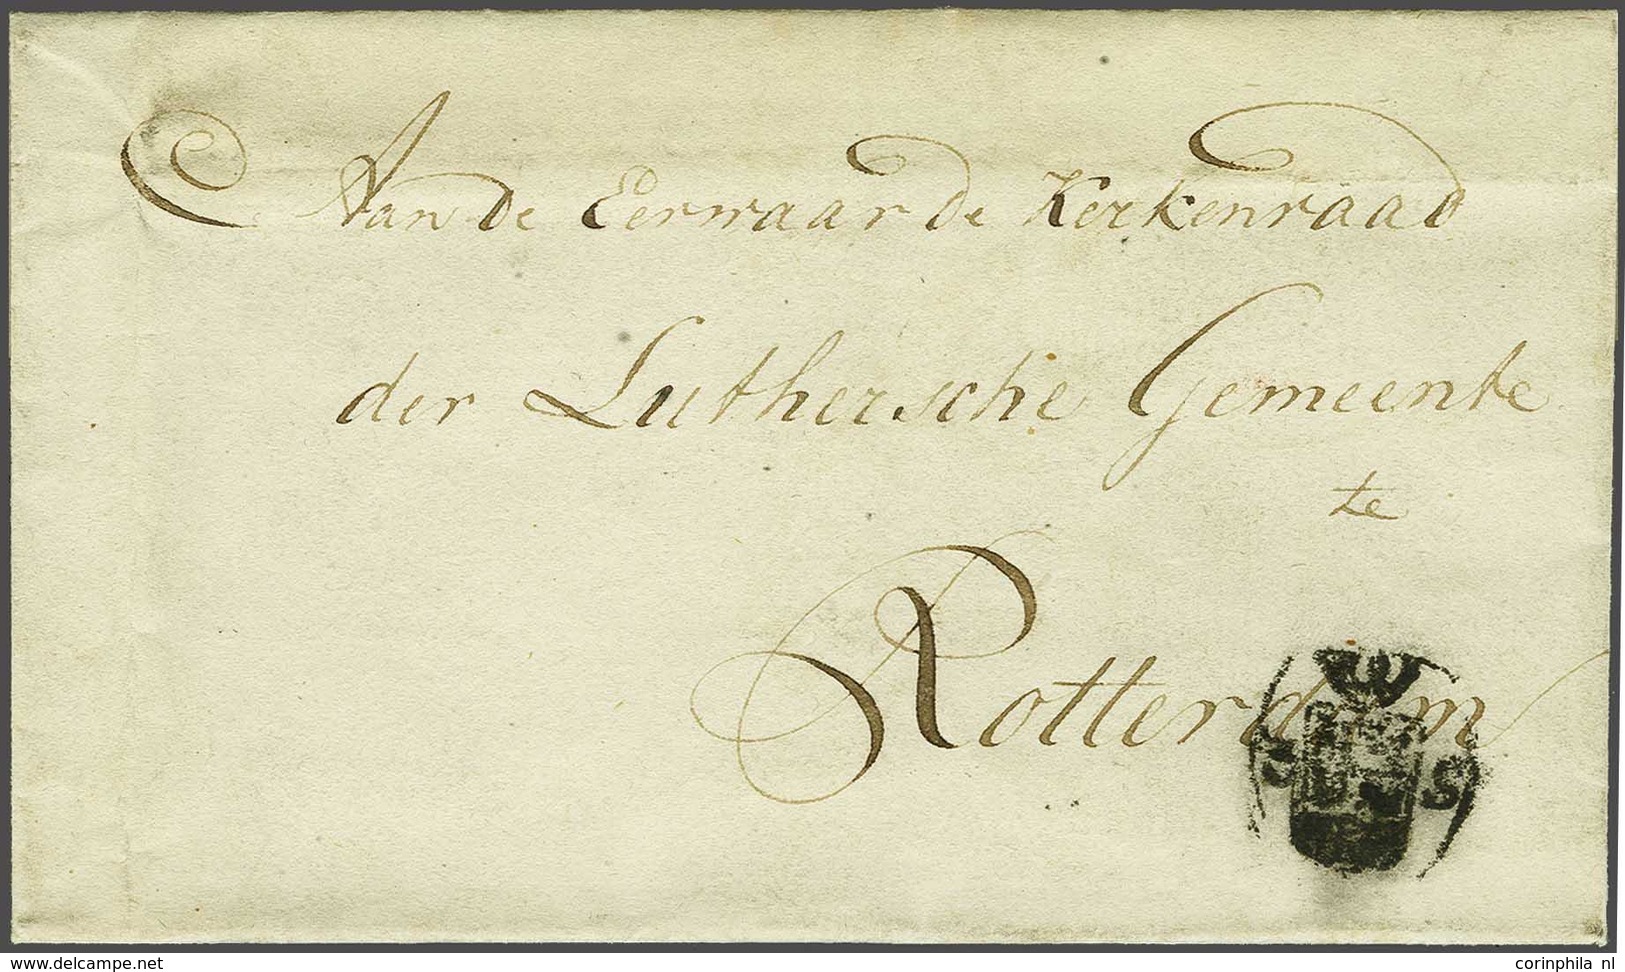 Aan de Eerwaarde Kerkenraad
der Luthersche Gemeente
te
Rotterdam
S
www.delcampe.net
corinphila nl